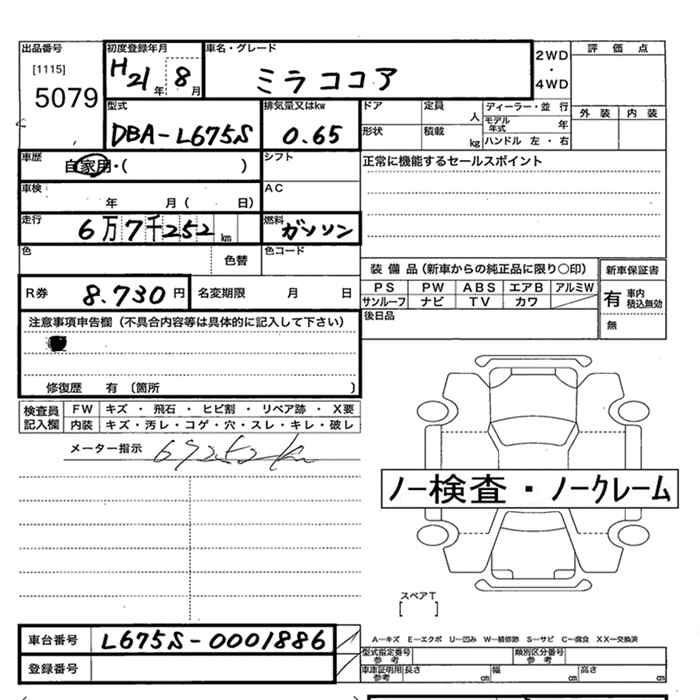 出品番号 初度登録年月 車名・グレード 2WD・4WD 評価点
[1115] H21年 8月 ミラココア
5079 外装 内装
型式 排気量又はkw ドア 定員 人 ディーラー・並行
DBA-L675S 0.65 形状 積載 kg モデル年式 年
ハンドル 左・右
車歴 自家用・( ) シフト 正常に機能するセールスポイント
車検 年 月( 日) AC
走行 6万7千252km 燃料 ガソリン
色 色替 色コード
装備品(新車からの純正品に限り○印) 新車保証書
R券 8.730円 名変期限 月 日 PS PW ABS エアB アルミW 有 車内積込無効
サンルーフ ナビ TV カワ 無
注意事項申告欄(不具合内容等は具体的に記入して下さい) 後日品
修復歴 有 〔箇所 〕
検査員記入欄 FW キズ・飛石・ヒビ割・リペア跡・X要
内装 キズ・汚レ・コゲ・穴・スレ・キレ・破レ
メーター指示 67252km
ノー検査・ノークレーム
スペアT
[ ]
車台番号 L675S-0001886 A―キズ E―エクボ U―凹み W―補修跡 S―サビ C―腐食 XX―交換済
型式指定番号 参考 類別区分番号 参考
登録番号 車庫証明用 参考 長さ cm 幅 cm 高さ cm